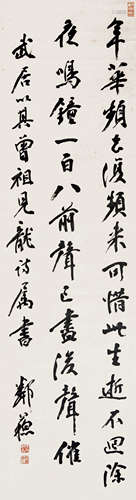 年華頻去復頻來可惜此生逝不迴除
夜鳴鐘一百八前聲已盡後聲催
武居以其曾祖見龍詩屬書 鄰蘇